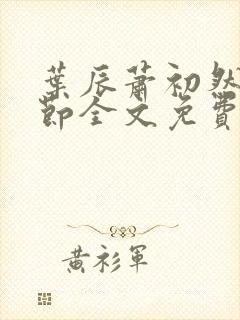 葉辰蕭初然
節全文免費
黃衫軍